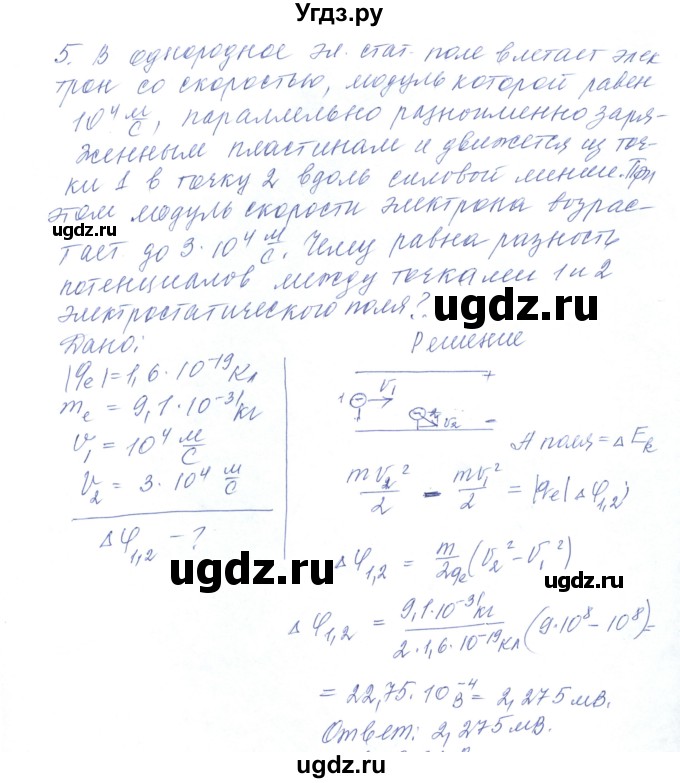 Угдз.ру
5. В однородное эл. стат. поле влетает элек-
трон со скоростью, модуль которой равен
10⁴ м/с, параллельно разноименно заря-
женным пластинам и движется из точ-
ки 1 в точку 2 вдоль силовой линии. При
этом модуль скорости электрона возрас-
тает до 3·10⁴ м/с. Чему равна разность
потенциалов между точками 1 и 2
электростатического поля?
ugdz.ru
Дано: Решение
|qe| = 1,6·10⁻¹⁹ Кл
me = 9,1·10⁻³¹ кг
v₁ = 10⁴ м/с
v₂ = 3·10⁴ м/с
Δφ₁,₂ - ?
ugdz.ru
+
1 − v₁
v₂ −
A поля = ΔEк
mv₂²/2 - mv₁²/2 = |qe| Δφ₁,₂;
Δφ₁,₂ = m/2qe (v₂² - v₁²)
ugdz.ru
Δφ₁,₂ = 9,1·10⁻³¹ кг/2·1,6·10⁻¹⁹ Кл (9·10⁸ - 10⁸) =
= 22,75·10⁻⁴ В = 2,275 мВ.
Ответ: 2,275 мВ.
ugdz.ru